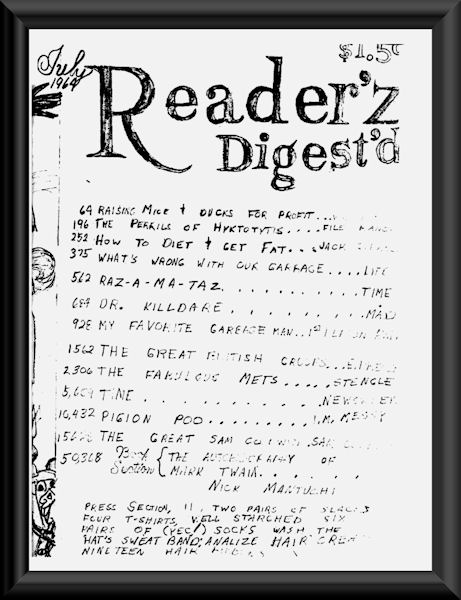 July
1964
$1.50
Reader'z
Digest'd
64 RAISING MICE + DUCKS FOR PROFIT...
196 THE PERRILS OF HYKTOTYTIS....FILE
252 HOW TO DIET + GET FAT...JACK
375 WHAT'S WRONG WITH OUR GARBAGE....LIFE
562 RAZ-A-MA-TAZ..........TIME
689 DR. KILLDARE.........MAD
928 MY FAVORITE GARBEAGE MAN..
1562 THE GREAT BRITISH
2306 THE FABULOUS METS.....STENGLE
TIME..........
10,432 PIGION POO.........I.M. MESSY
THE GREAT SAM SAM
50,368 Book Section { THE AUTOBIOGRAPHY OF
MARK TWAIN......
NICK
PRESS SECTION, TWO PAIRS OF SLACKS
FOUR T-SHIRTS, WELL STARCHED SIX
PAIRS OF (YEC!) SOCKS WASH THE
HAT'S SWEAT BAND, ANALIZE HAIR CREAM
NINETEEN HAIR